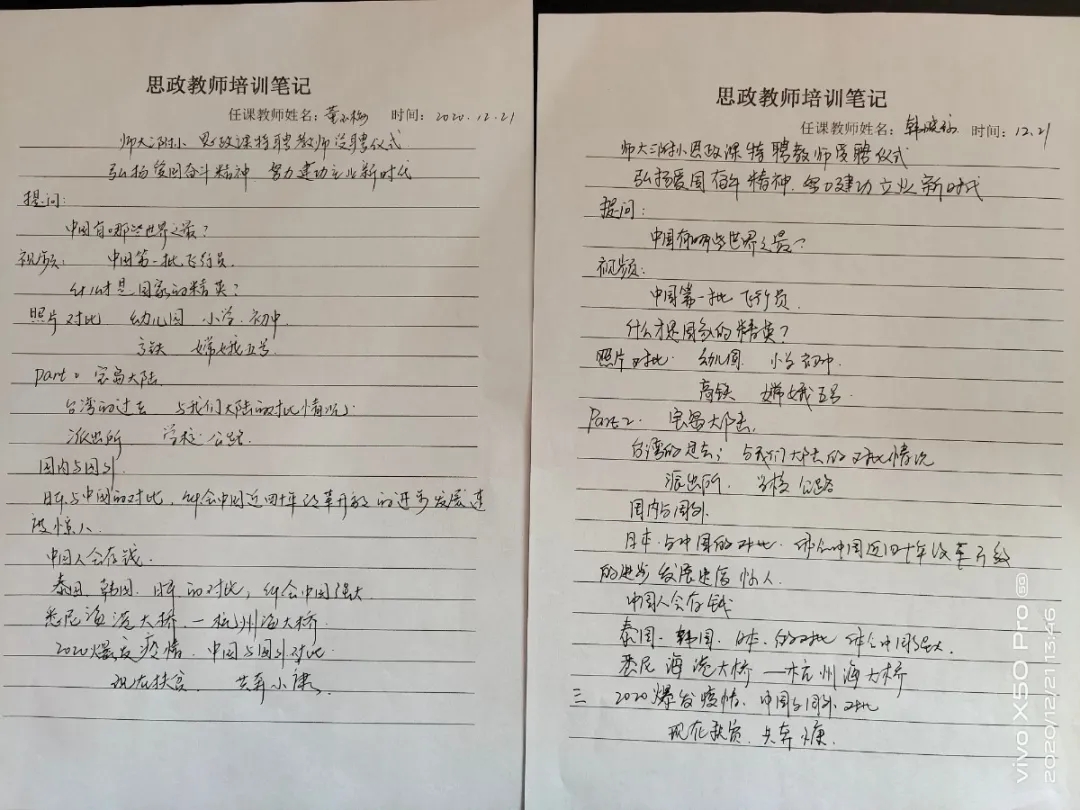 思政教师培训笔记
任课教师姓名：董 梅 时间：2020.12.21
师大二附小 思政课特聘教师受聘仪式
弘扬爱国奋斗精神 努力建功立业新时代
提问：
中国有哪些世界之最？
视频： 中国第一批飞行员.
什么才是国家的精英？
照片对比 幼儿园 小学.初中.
高铁 嫦娥五号.
part 2 宝岛大陆.
台湾的过去 与我们大陆的对比情况；
派出所 学校.公路.
国内与国外.
日本与中国的对比，体会中国近四十年改革开放的进步发展速
度惊人.
中国人会存钱.
泰国.韩国.日本的对比，体会中国强大.
悉尼海港大桥.—杭州海大桥.
2020爆发疫情.中国与国外对比.
现在扶贫. 共奔小康.
思政教师培训笔记
任课教师姓名：韩 时间：12.21
师大二附小思政课特聘教师受聘仪式
弘扬爱国奋斗精神.努力建功立业新时代
提问：
中国有哪些世界之最？
视频：
中国第一批飞行员.
什么才是国家的精英？
照片对比. 幼儿园. 小学初中.
高铁 嫦娥五号.
Part 2. 宝岛大陆.
台湾的过去；与我们大陆的对比情况
派出所. 学校 公路
国内与国外.
日本.与中国的对比.体会中国近四十年改革开放
的进步发展速度惊人.
中国人会存钱
泰国.韩国.日本.的对比 体会中国强大.
悉尼海港大桥—杭州海大桥
三 2020爆发疫情.中国与国外.对比
现在扶贫.共奔小康.
vivo X50 Pro 5G
2020/12/21 13:46